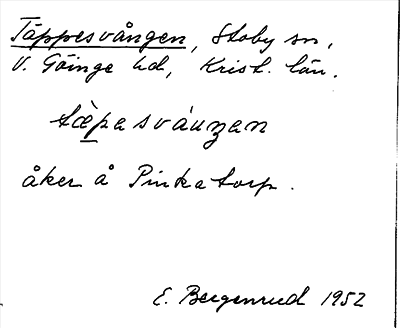 Täppesvången, Stoby sn,
V. Göinge hd, Krist. län.
tæ̀pasváuŋan
åker å Pinkatorp.
E. Bergenrud 1952